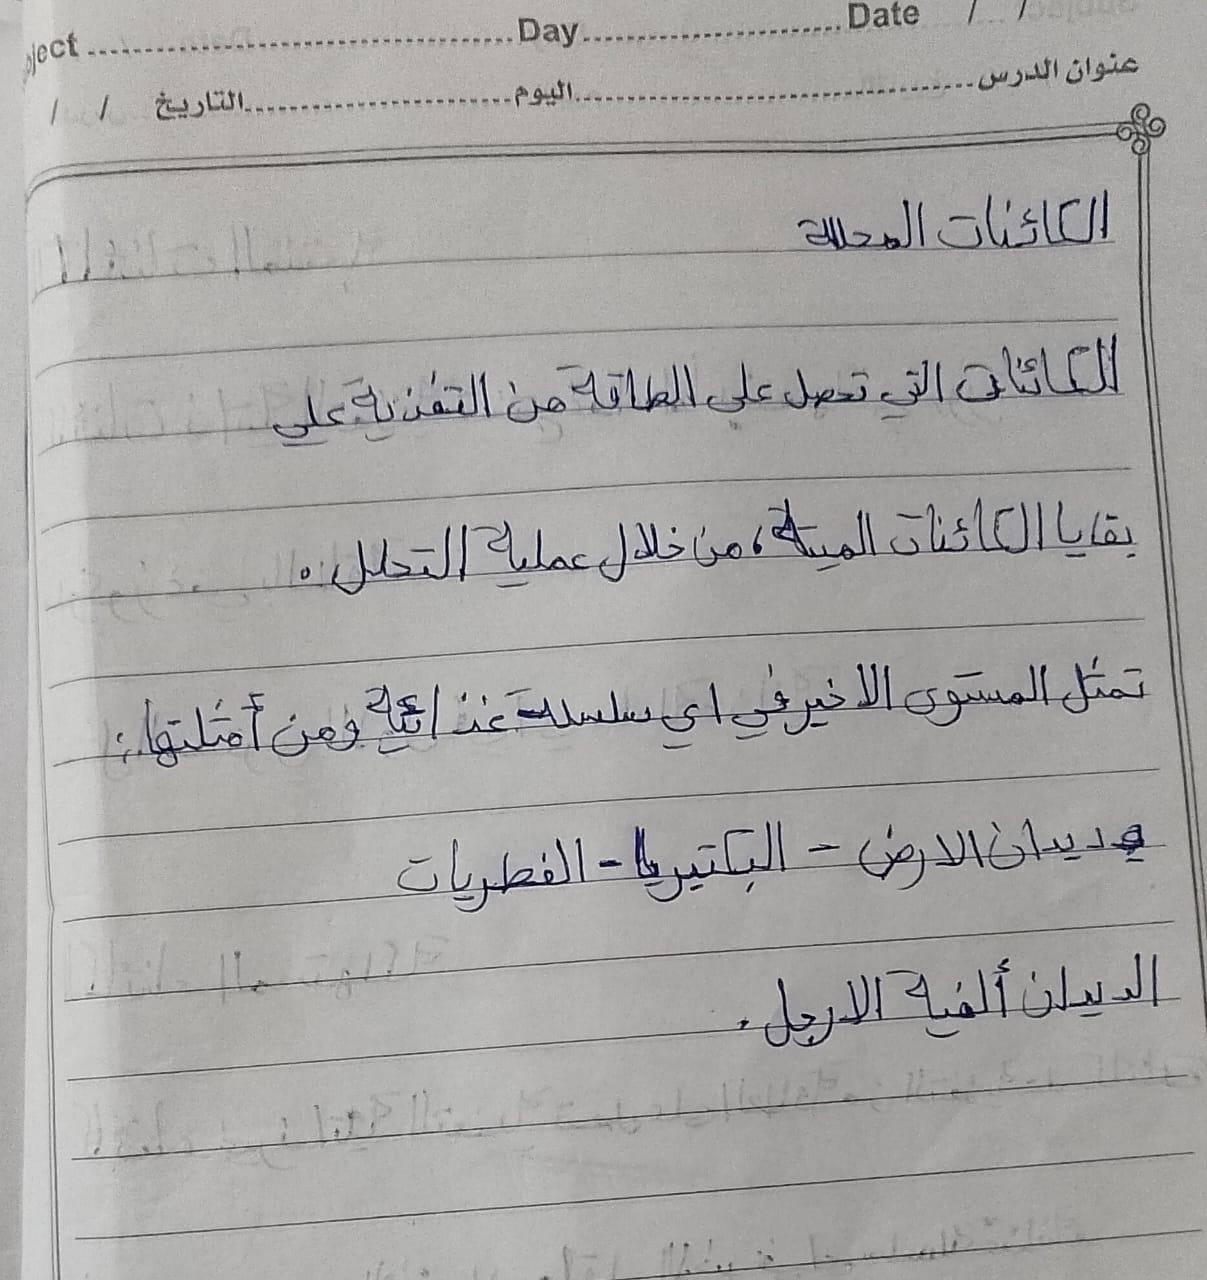 ject ........ Day ........ Date / /
عنوان الدرس ........ اليوم ........ التاريخ / /
الكائنات المحللة
الكائنات التي تحصل على الطاقة من التغذية على
بقايا الكائنات الميتة، من خلال عملية التحلل.
تمثل المستوى الاخير في اي سلسلة غذائية ومن أمثلتها:
ديدان الارض - البكتيريا - الفطريات
الديدان ألفية الارجل.